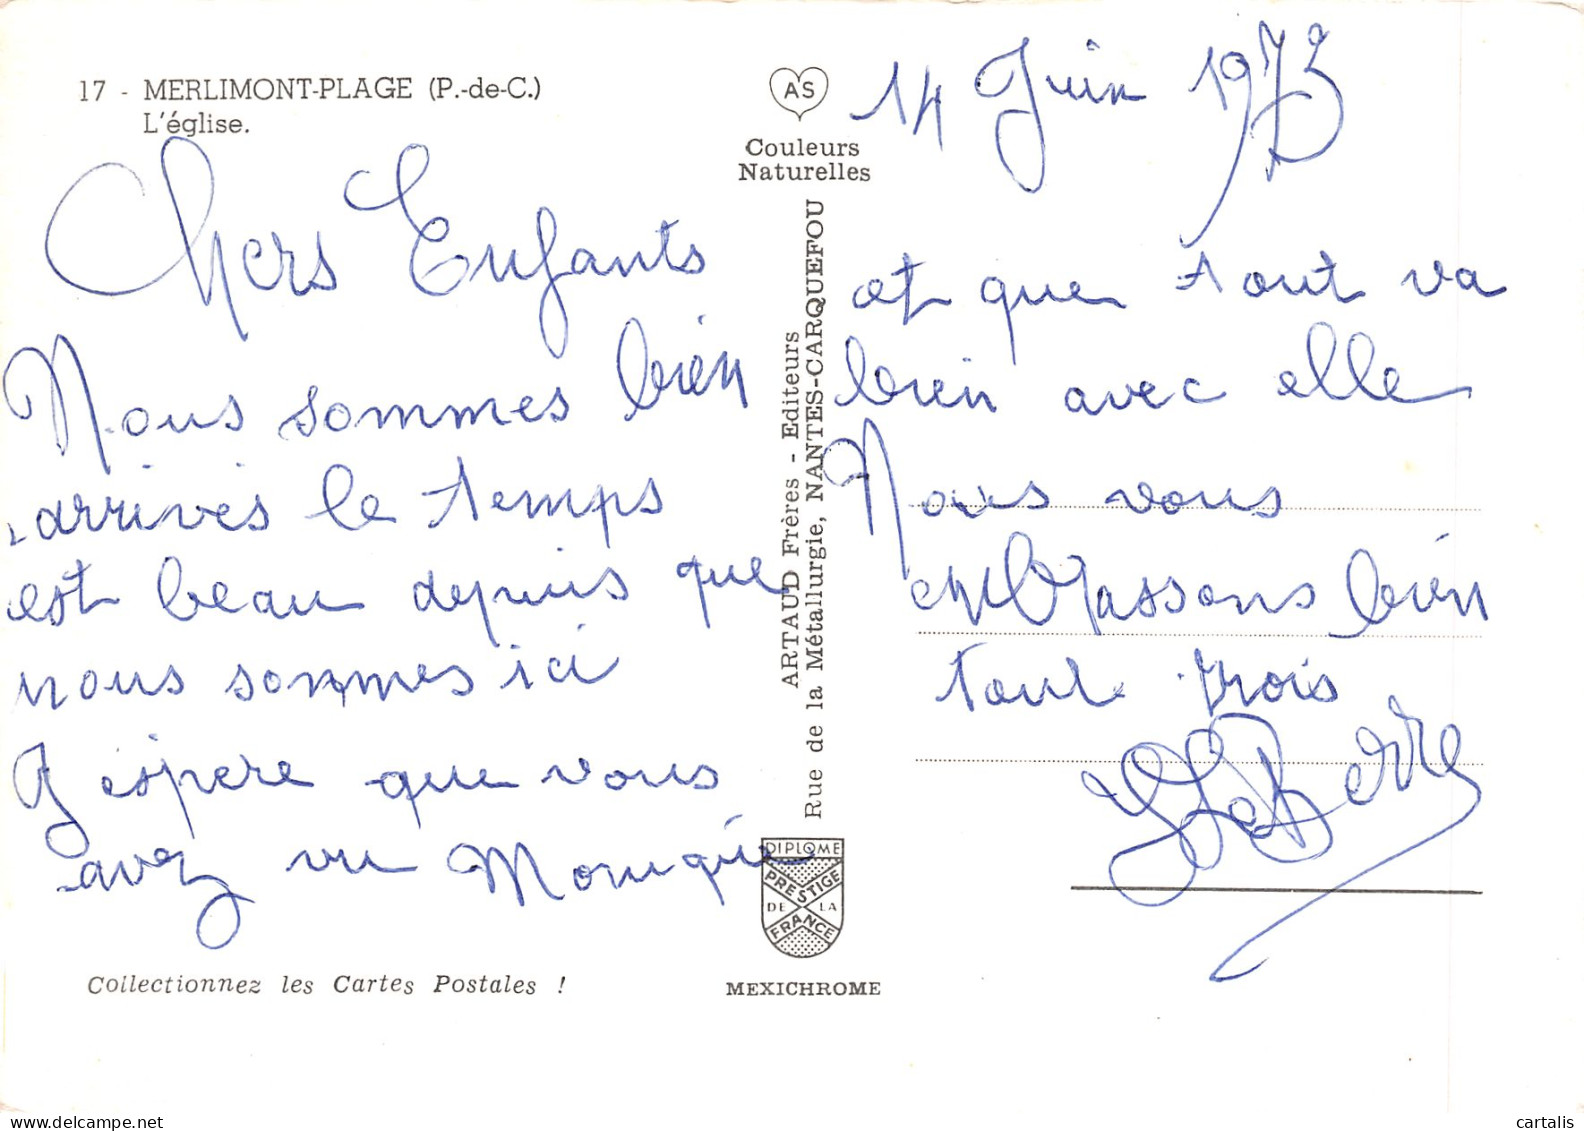 17 - MERLIMONT-PLAGE (P.-de-C.)
L'église.
Chers Enfants
Nous sommes bien
arrivés le temps
est beau depuis que
nous sommes ici
J espere que vous
avez vu Monique
Collectionnez les Cartes Postales !
AS
Couleurs
Naturelles
ARTAUD Frères - Editeurs
Rue de la Métallurgie, NANTES-CARQUEFOU
DIPLOME
PRESTIGE
DE LA
FRANCE
MEXICHROME
14 Juin 1973
et que tout va
bien avec elle
Nous vous
embrassons bien
tout trois
cartalis
delcampe.net